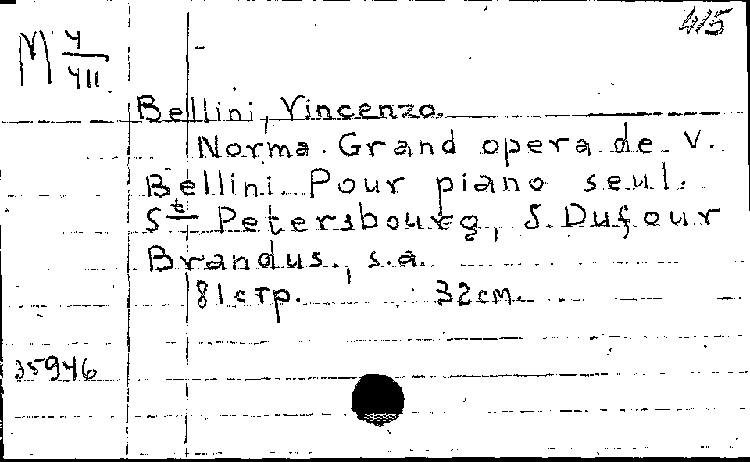 415
М 4/411
Bellini, Vincenzo.
Norma. Grand opera de V.
Bellini. Pour piano seul.
Ste Petersbourg, S. Dufour
Brandus., s.a.
81 стр. 32 см.
35946